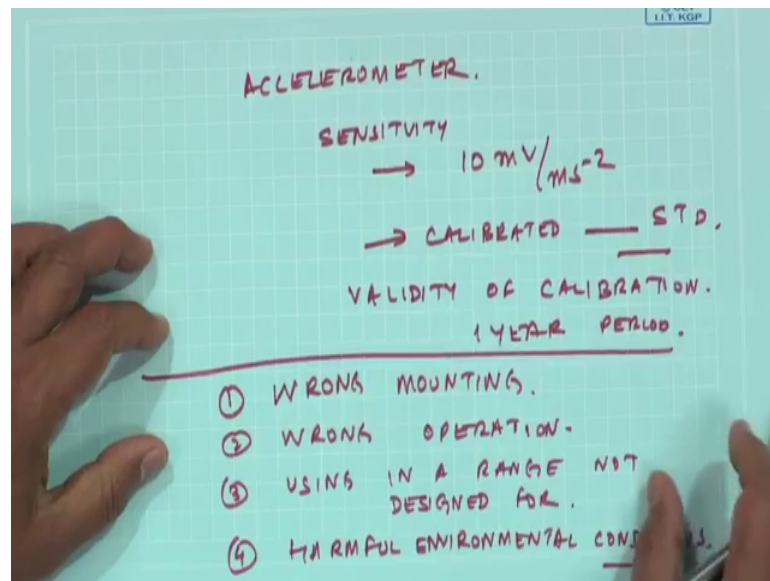 I.I.T. KGP
ACCLELEROMETER.
SENSITVITY
→ 10 mV/ms-2
→ CALIBRATED — STD.
VALIDITY OF CALIBRATION.
1 YEAR PERIOD.
① WRONG MOUNTING.
② WRONG OPERATION.
③ USING IN A RANGE NOT
DESIGNED FOR.
④ HARMFUL ENVIRONMENTAL